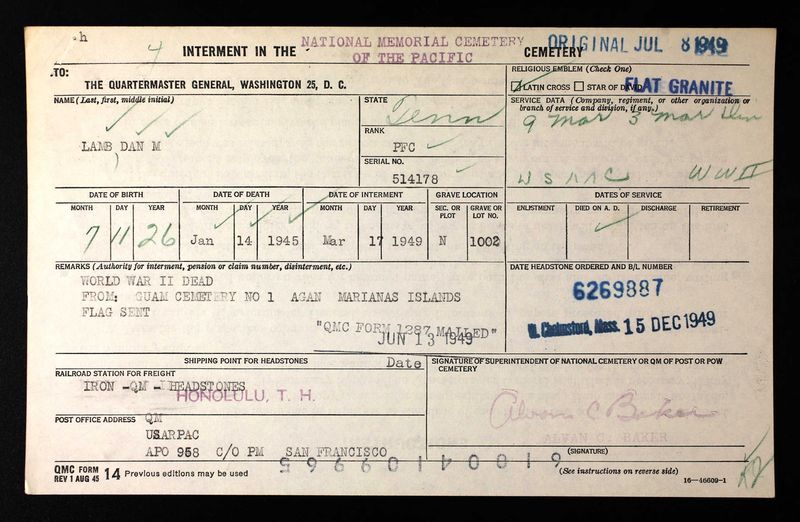 h
4
INTERMENT IN THE NATIONAL MEMORIAL CEMETERY OF THE PACIFIC CEMETERY
ORIGINAL JUL 8 1949
TO:
THE QUARTERMASTER GENERAL, WASHINGTON 25, D. C.
RELIGIOUS EMBLEM (Check One)
LATIN CROSS STAR OF DAVID
FLAT GRANITE
NAME (Last, first, middle initial)
LAMB DAN M
STATE
Tenn
RANK
PFC
SERIAL NO.
514178
SERVICE DATA (Company, regiment, or other organization or branch of service and division, if any.)
9 Mar 3 Mar Div
WW II
DATE OF BIRTH
MONTH DAY YEAR
7 11 26
DATE OF DEATH
MONTH DAY YEAR
Jan 14 1945
DATE OF INTERMENT
MONTH DAY YEAR
Mar 17 1949
GRAVE LOCATION
SEC. OR PLOT GRAVE OR LOT NO.
N 1002
DATES OF SERVICE
ENLISTMENT DIED ON A. D. DISCHARGE RETIREMENT
REMARKS (Authority for interment, pension or claim number, disinterment, etc.)
WORLD WAR II DEAD
FROM: GUAM CEMETERY NO 1 AGAN MARIANAS ISLANDS
FLAG SENT
"QMC FORM 1287 MAILED"
JUN 13 1949
Date
DATE HEADSTONE ORDERED AND B/L NUMBER
6269887
W. Chelmsford, Mass. 15 DEC 1949
SHIPPING POINT FOR HEADSTONES
RAILROAD STATION FOR FREIGHT
IRON -QM - HEADSTONES
HONOLULU, T. H.
POST OFFICE ADDRESS
QM
USARPAC
APO 958 C/O PM SAN FRANCISCO
SIGNATURE OF SUPERINTENDENT OF NATIONAL CEMETERY OR QM OF POST OR POW CEMETERY
Alvan C Baker
ALVAN C. BAKER
(SIGNATURE)
QMC FORM 14 Previous editions may be used
REV 1 AUG 45
(See instructions on reverse side)
16—46609-1